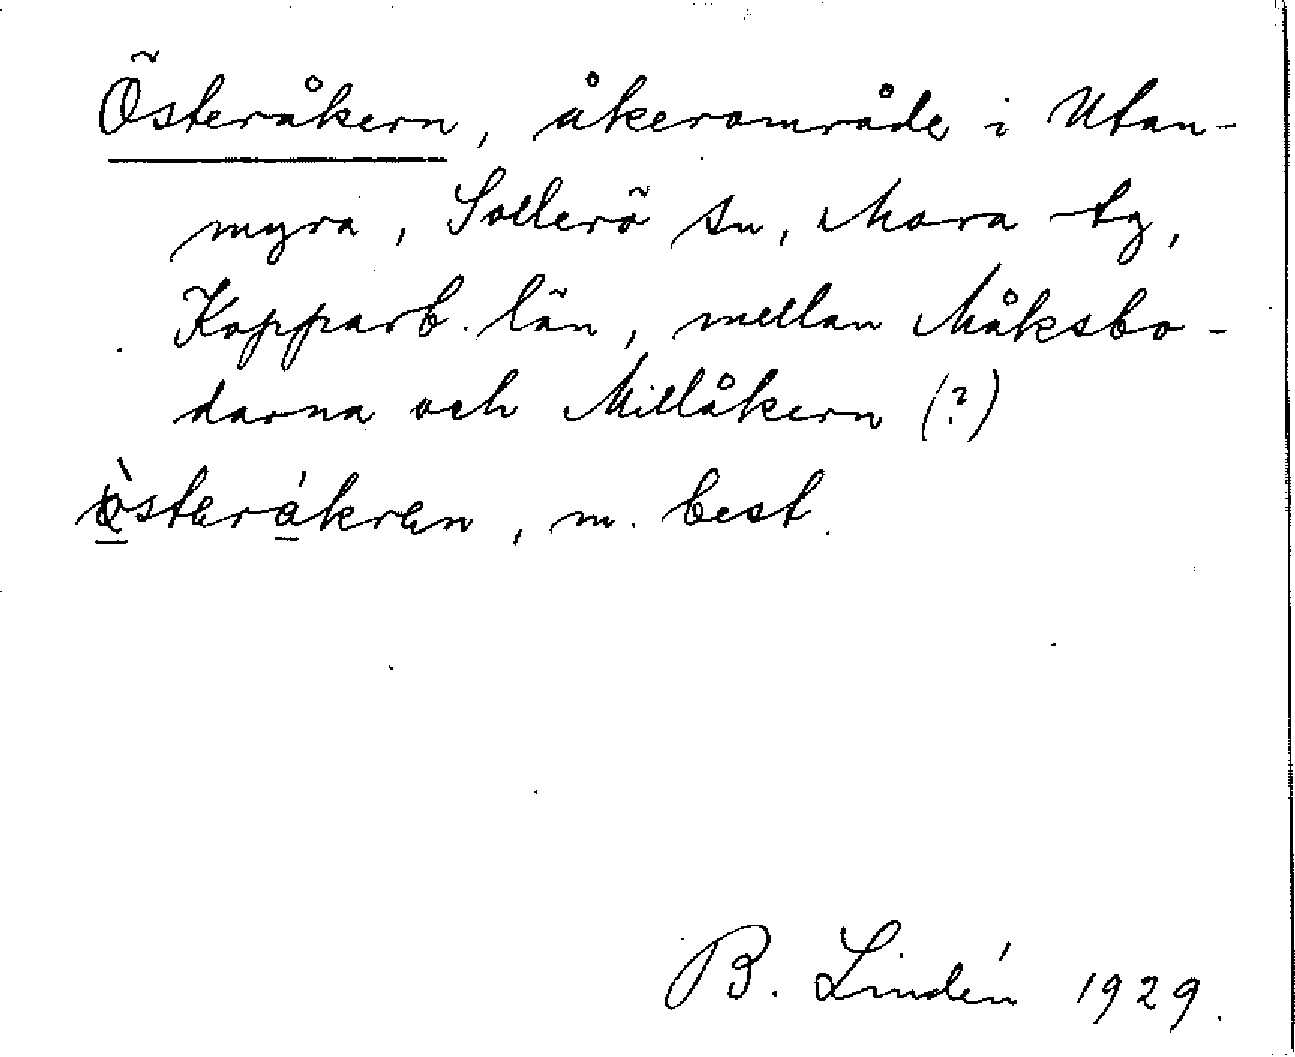 Österåkern, åkerområde i Utan-
myra, Sollerö sn, Mora tg,
Kopparb. län, mellan Måksbo-
darna och Millåkern (?)
òsteråkren, m. best.
B. Lindén 1929.